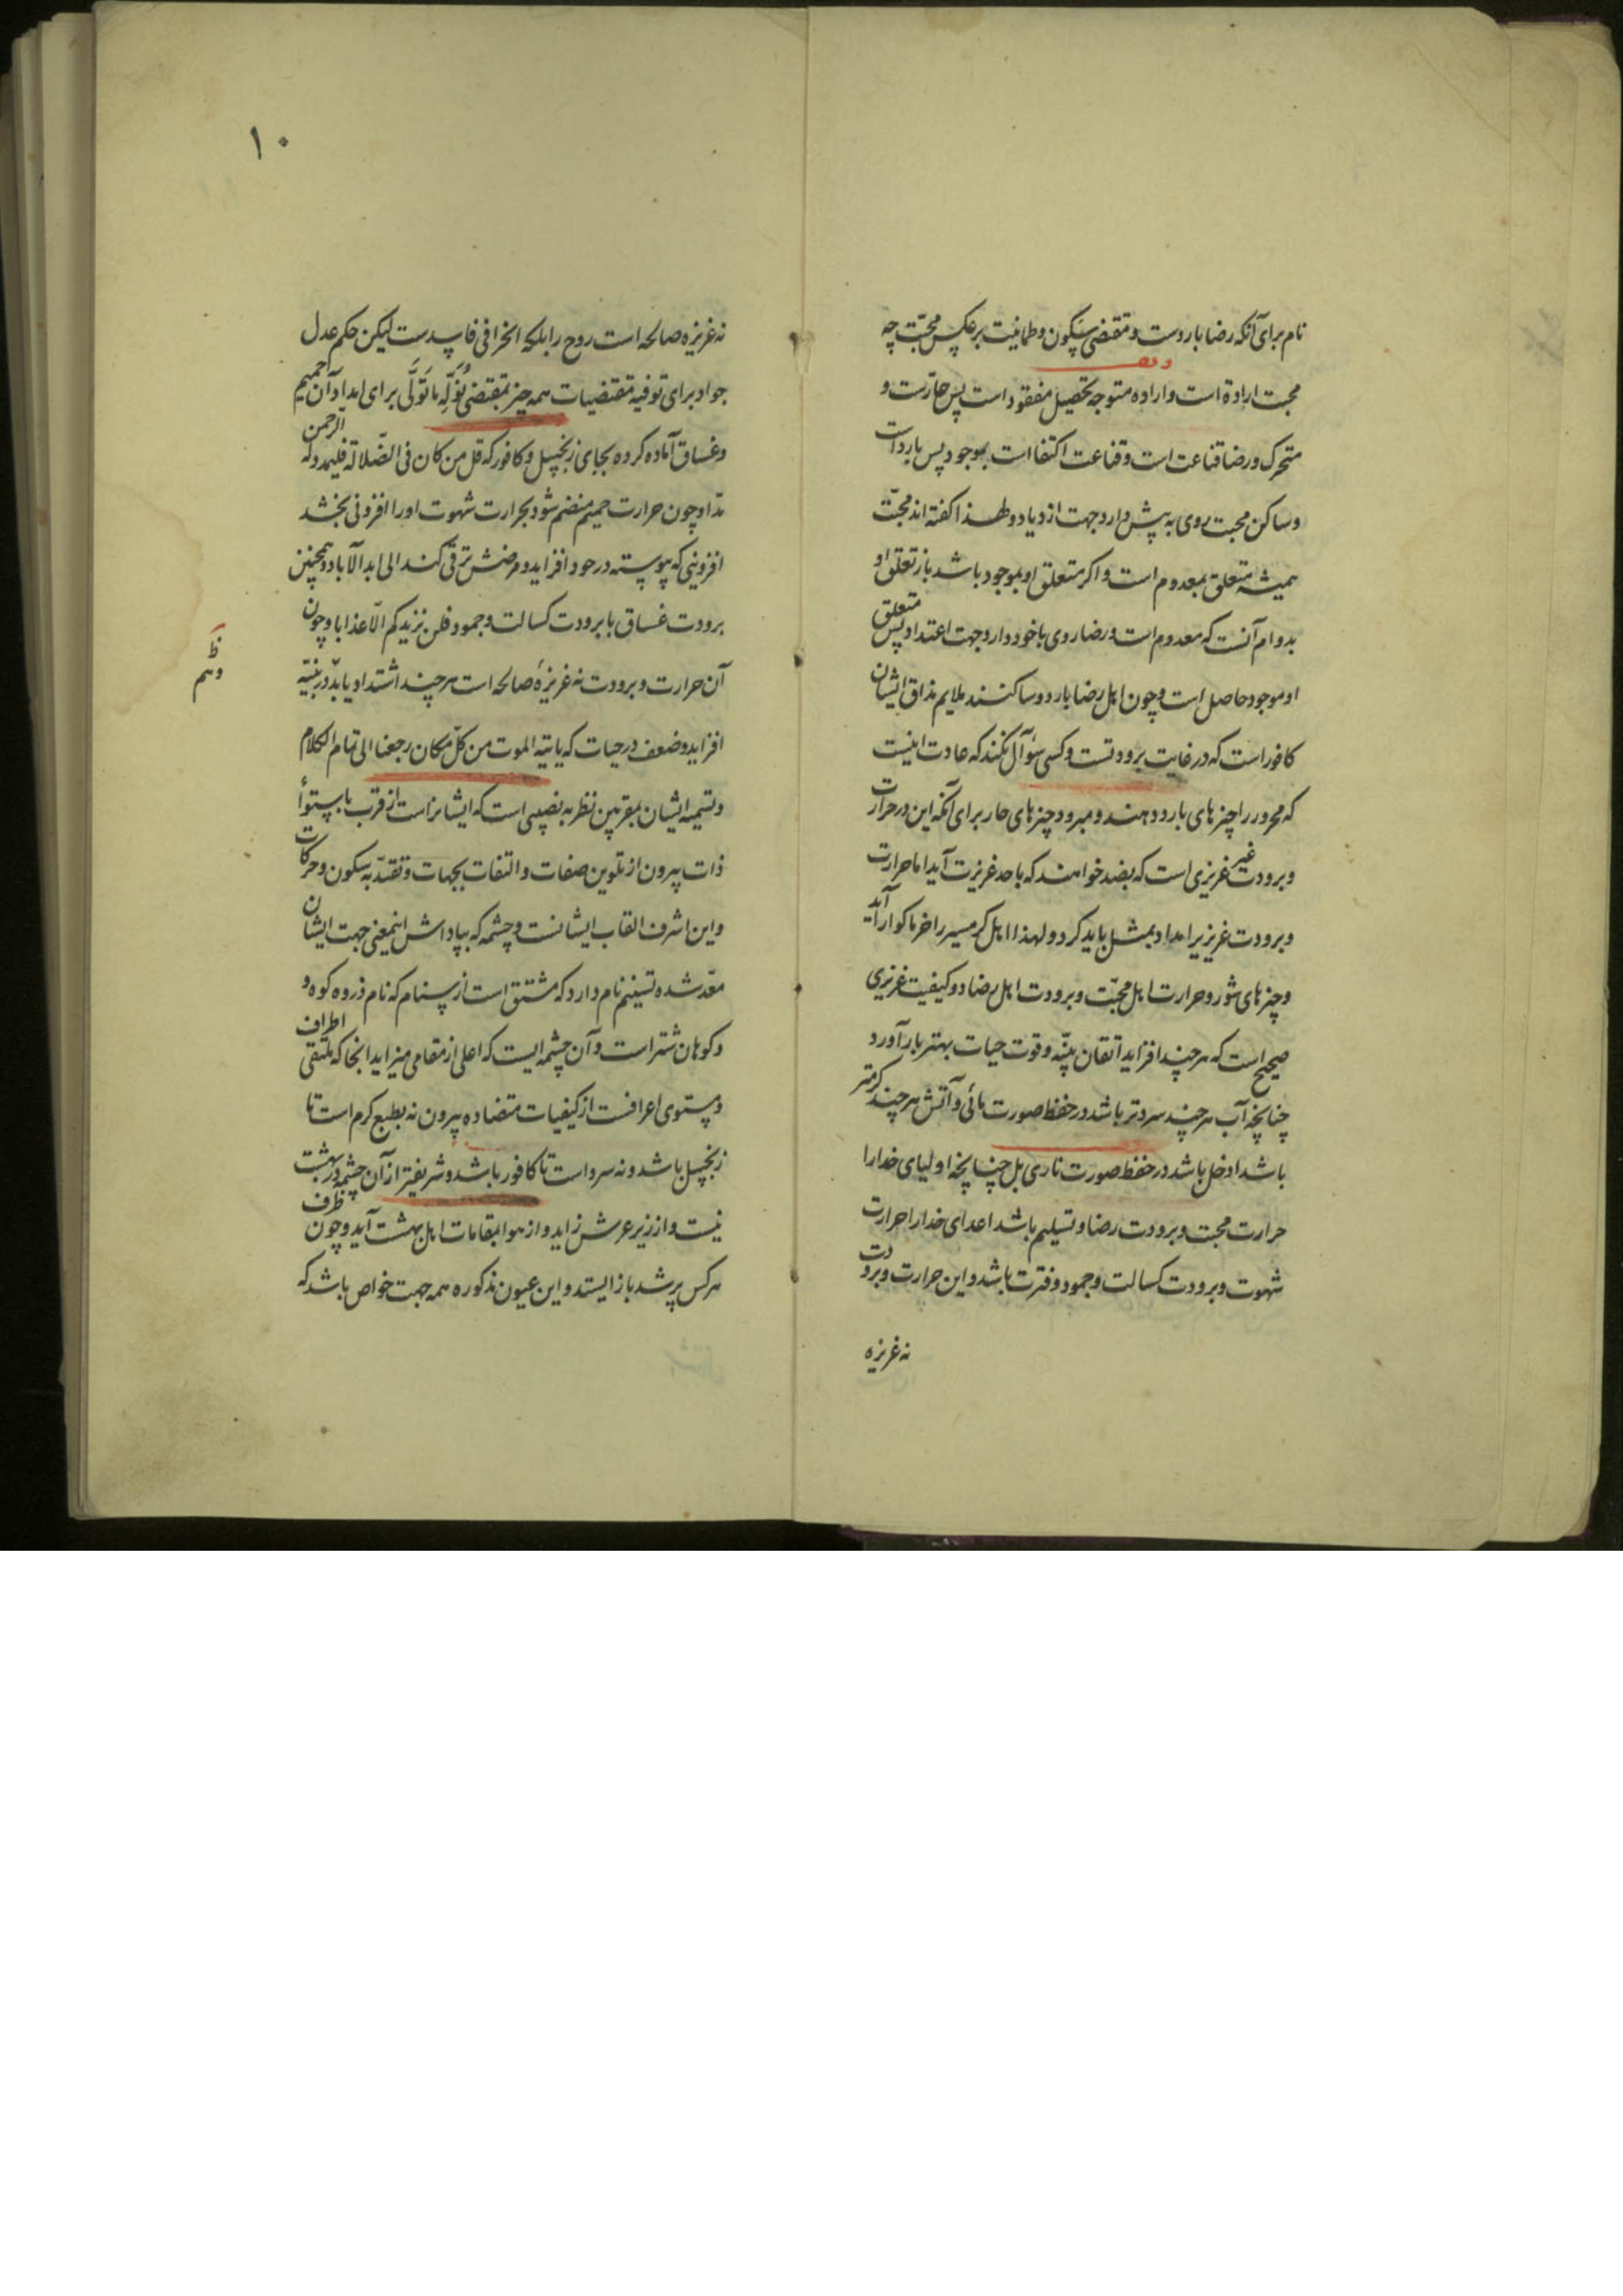 نام برای آنکه رضا باردست و مقتضی سکون و طمانینت برعکس محبّت چه
محبت اراده است و اراده متوجه تحصیل مفقود است پس حارّست و
متحرک و رضا قناعت است و قناعت اکتفا است بموجود پس بارد است
و ساکن محبت روی به پیش دارد جهت ازدیاد و لهذا کفته اند محبّت
همیشه متعلق بمعدوم است و اکر متعلق او موجود باشد باز تعلق او
بدوام آنست که معدوم است و رضا روی با خود دارد جهت اعتداد پس متعلق
او موجود حاصل است و چون اهل رضا بارد و ساکنند ملایم مذاق ایشان
کافور است که در غایت برودتست و کسی سؤآل نکند که عادت اینست
که محرور را چیزهای بارد دهند و مبرود چیزهای حار برای آنکه این در حرارت
و برودت غیر غریزی است که بضد خواهند که باحد غریزت آید اما حرارت
و برودت غریزیرا امداد بمثل باید کرد و لهذا اهل کرمسیر را خرما کوار آید
و چیزهای شور و حرارت اهل محبّت و برودت اهل رضا دو کیفیت غریزی
صحیح است که هر چند افزاید اتقان بنیّه و قوت حیات بهتر بار آورد
چنانچه آب هر چند سردتر باشد در حفظ صورت مائی و آتش هر چند کرمتر
باشد ادخل باشد در حفظ صورت ناری بل چنانچه اولیای خدارا
حرارت محبت و برودت رضا و تسلیم باشد اعدای خدارا حرارت
شهوت و برودت کسالت و جمود و فترت باشد و این حرارت و برودت
نه غریزه
۱۰
نه غریزه صالحه است روح را بلکه انحرافی فاسدست لیکن حکم عدل
جواد برای توفیه مقتضیات همه چیز بمقتضی نُوَلِّهِ مَا تَوَلَّی برای امداد آن حمیم
و غساق آماده کرده بجای زنجبیل و کافور که قل من کان فی الضّلالة فلیمدد له الرحمن
مدّا و چون حرارت حمیم منضم شود بحرارت شهوت اورا افزونی بخشد
افزونیی که پیوسته در حود افزاید و مرضش ترقی کند الی ابد الآباد و همچنین
برودت غساق با برودت کسالت و جمود فلن نزیدکم الّا عذابا و چون
آن حرارت و برودت نه غریزهٔ صالحه است هر چند اشتداد یابد در بنیّه
وهم
افزاید و ضعف در حیات که یاتیه الموت من کلّ مکان رجعنا الی تمام الکلام
و تسمیه ایشان بمقربین نظر به نصیبی است که ایشانراست از قرب باستوأ
ذات بیرون از تلوین صفات و التفات بجهات و تقیّد به سکون و حرکات
و این اشرف القاب ایشانست و چشمه که بپاداش اینمعنی جهت ایشان
معدّ شده تسنیم نام دارد که مشتق است از سنام که نام ذروه کوه و
و کوهان شتر است و آن چشمه ایست که اعلی از مقامی میزاید انجا که ملتقی اطراف
و مستوی اعرافست از کیفیات متضاده بیرون نه بطبع کرم است تا
زنجبیل باشد و نه سرد است تا کافور باشد و شریفتر از آن چشمه در بهشت
نیست و از زیر عرش زاید و از هوا بمقامات اهل بهشت آید و چون ظرف
هر کس پر شد باز ایستد و این عیون مذکوره همه جهت خواص باشد که